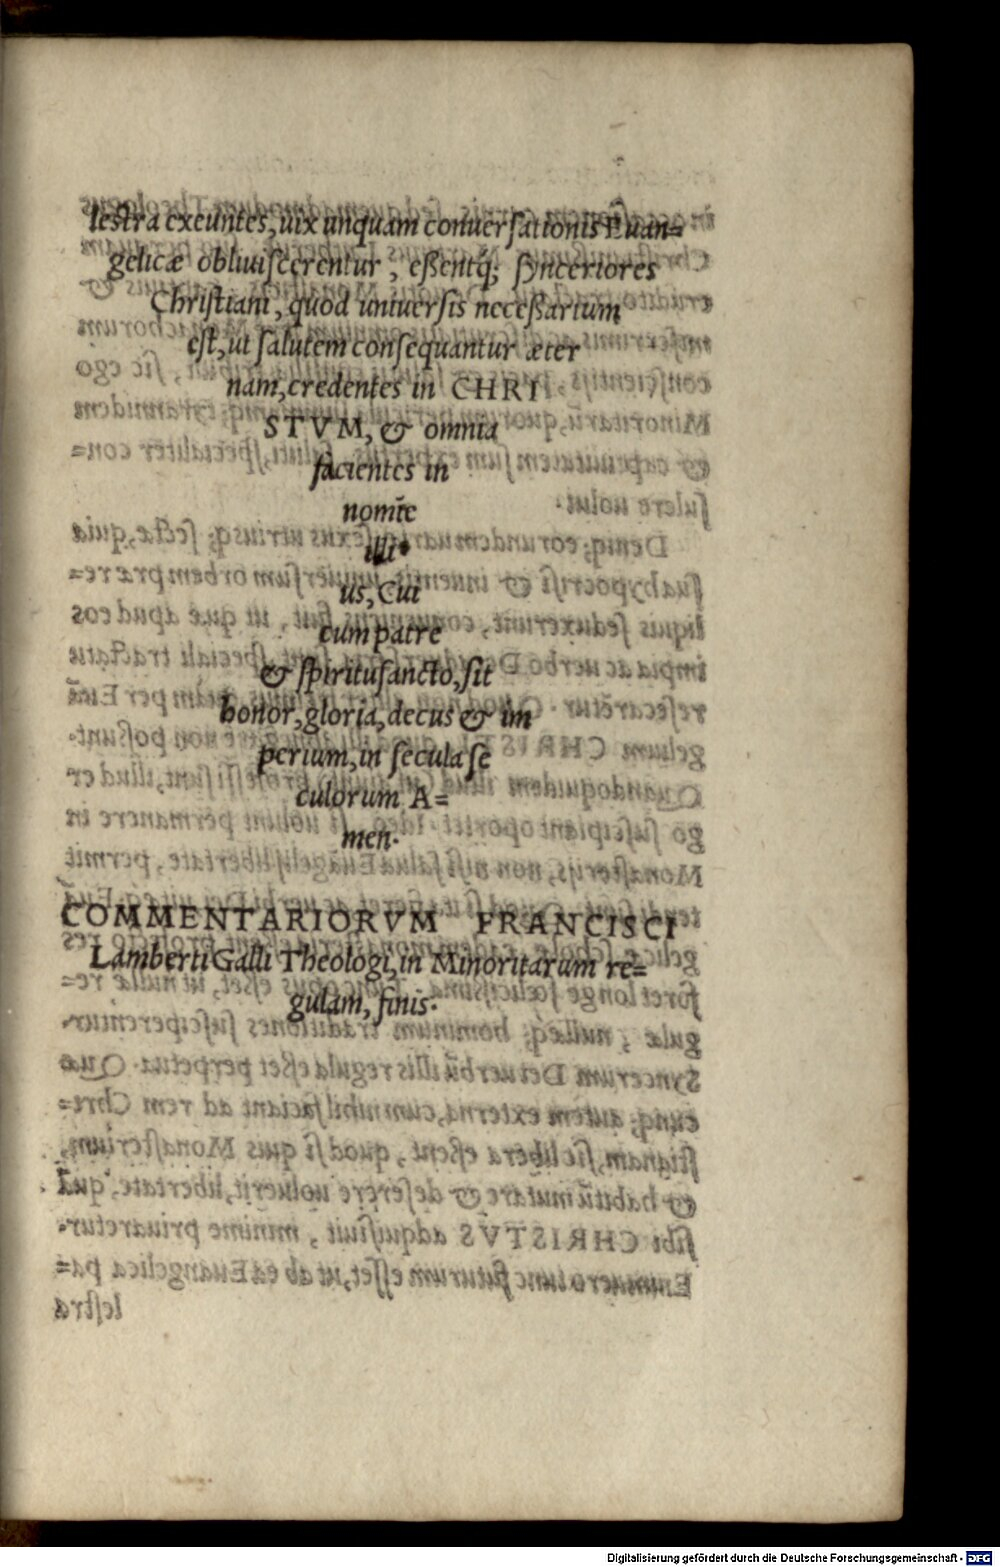 lestra exeuntes, uix unquam conuersationis Euan=
gelicæ obliuiscerentur, eßentq́; synceriores
Christiani, quod uniuersis neceßarium
est, ut salutem consequantur æter
nam, credentes in CHRI
STVM, & omnia
facientes in
nomīe
illi•
us, Cui
cum patre
& spiritusancto, sit
honor, gloria, decus & im
perium, in secula se
culorum A=
men.
COMMENTARIORVM FRANCISCI
Lamberti Galli Theologi, in Minoritarum re=
gulam, finis.
Digitalisierung gefördert durch die Deutsche Forschungsgemeinschaft - DFG